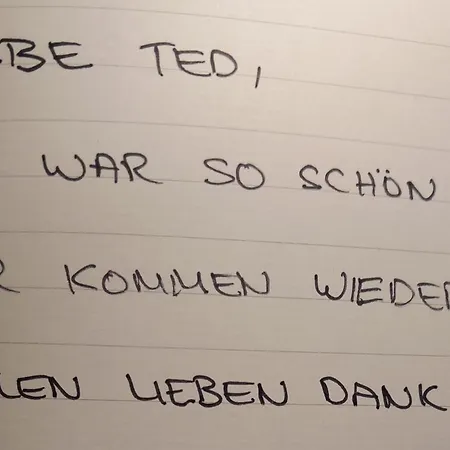 EBE TED,
WAR SO SCHÖN
R KOMMEN WIEDER
LEN LIEBEN DANK